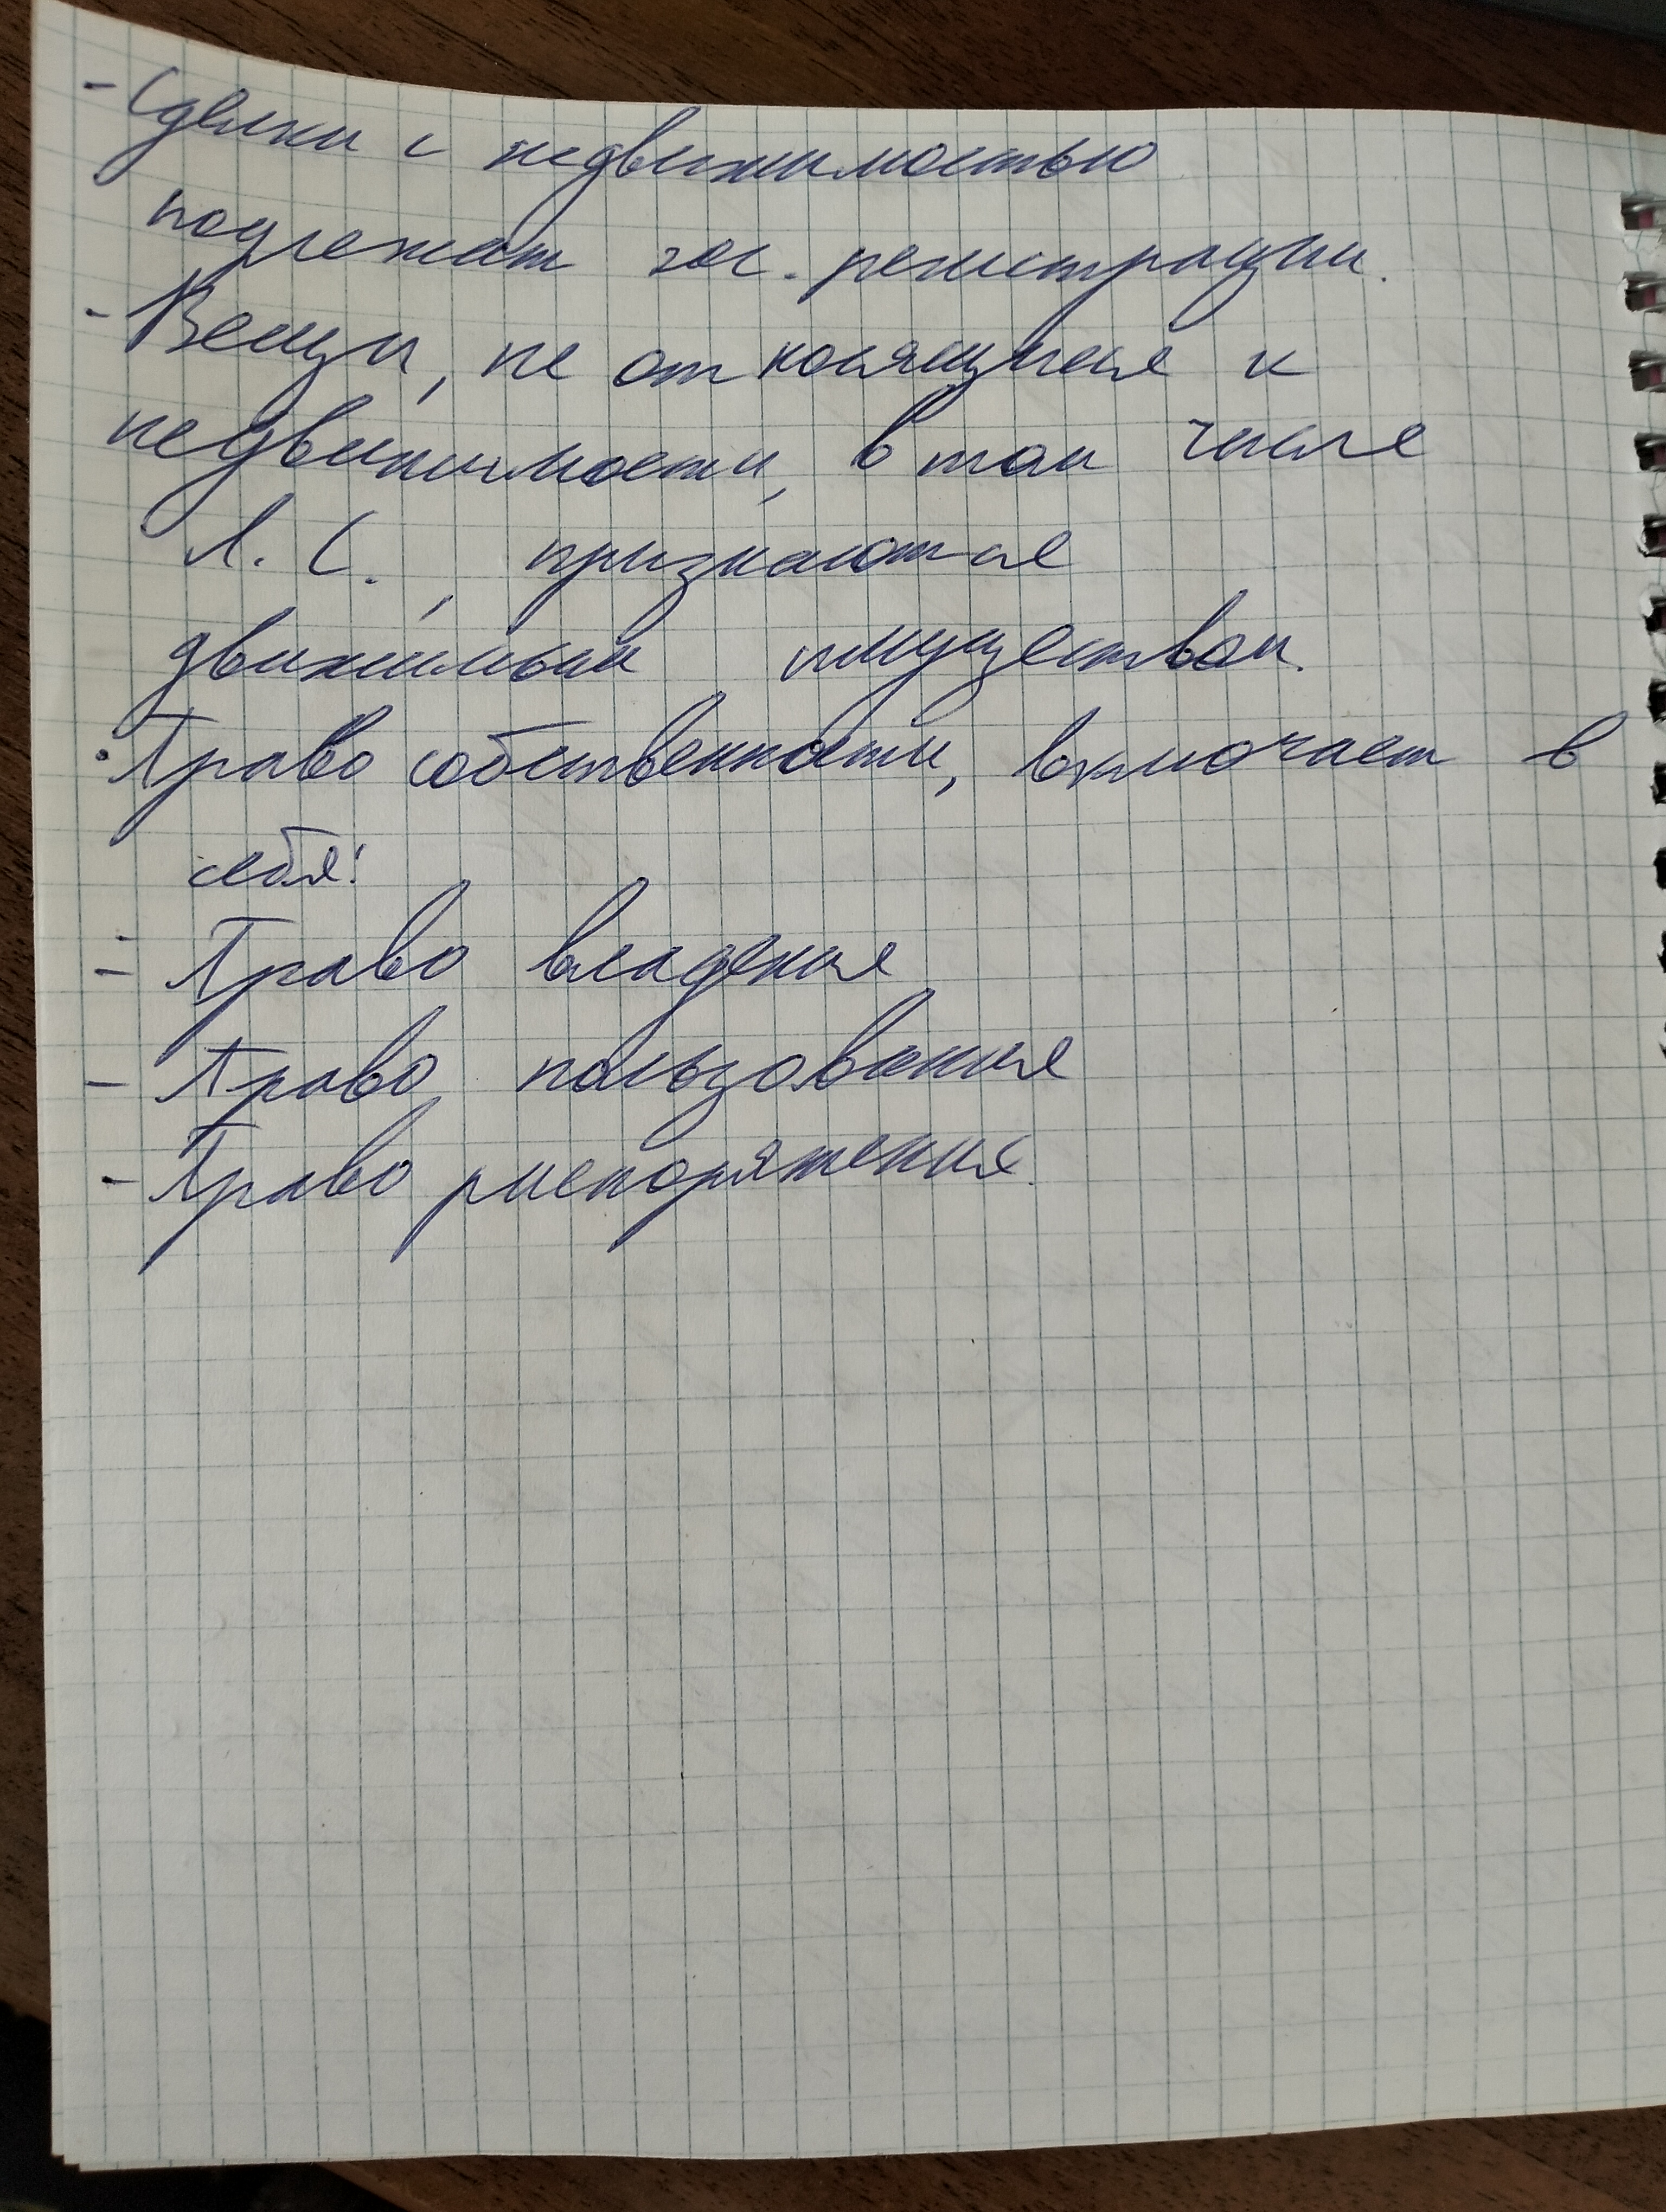 - Сделки с недвижимостью
подлежат гос. регистрации.
- Вещи, не относящиеся к
недвижимости, в том числе
Л. С., признаются
движимым имуществом.
• Право собственности, включает в
себя:
- Право владения
- Право пользования
- Право распоряжения.